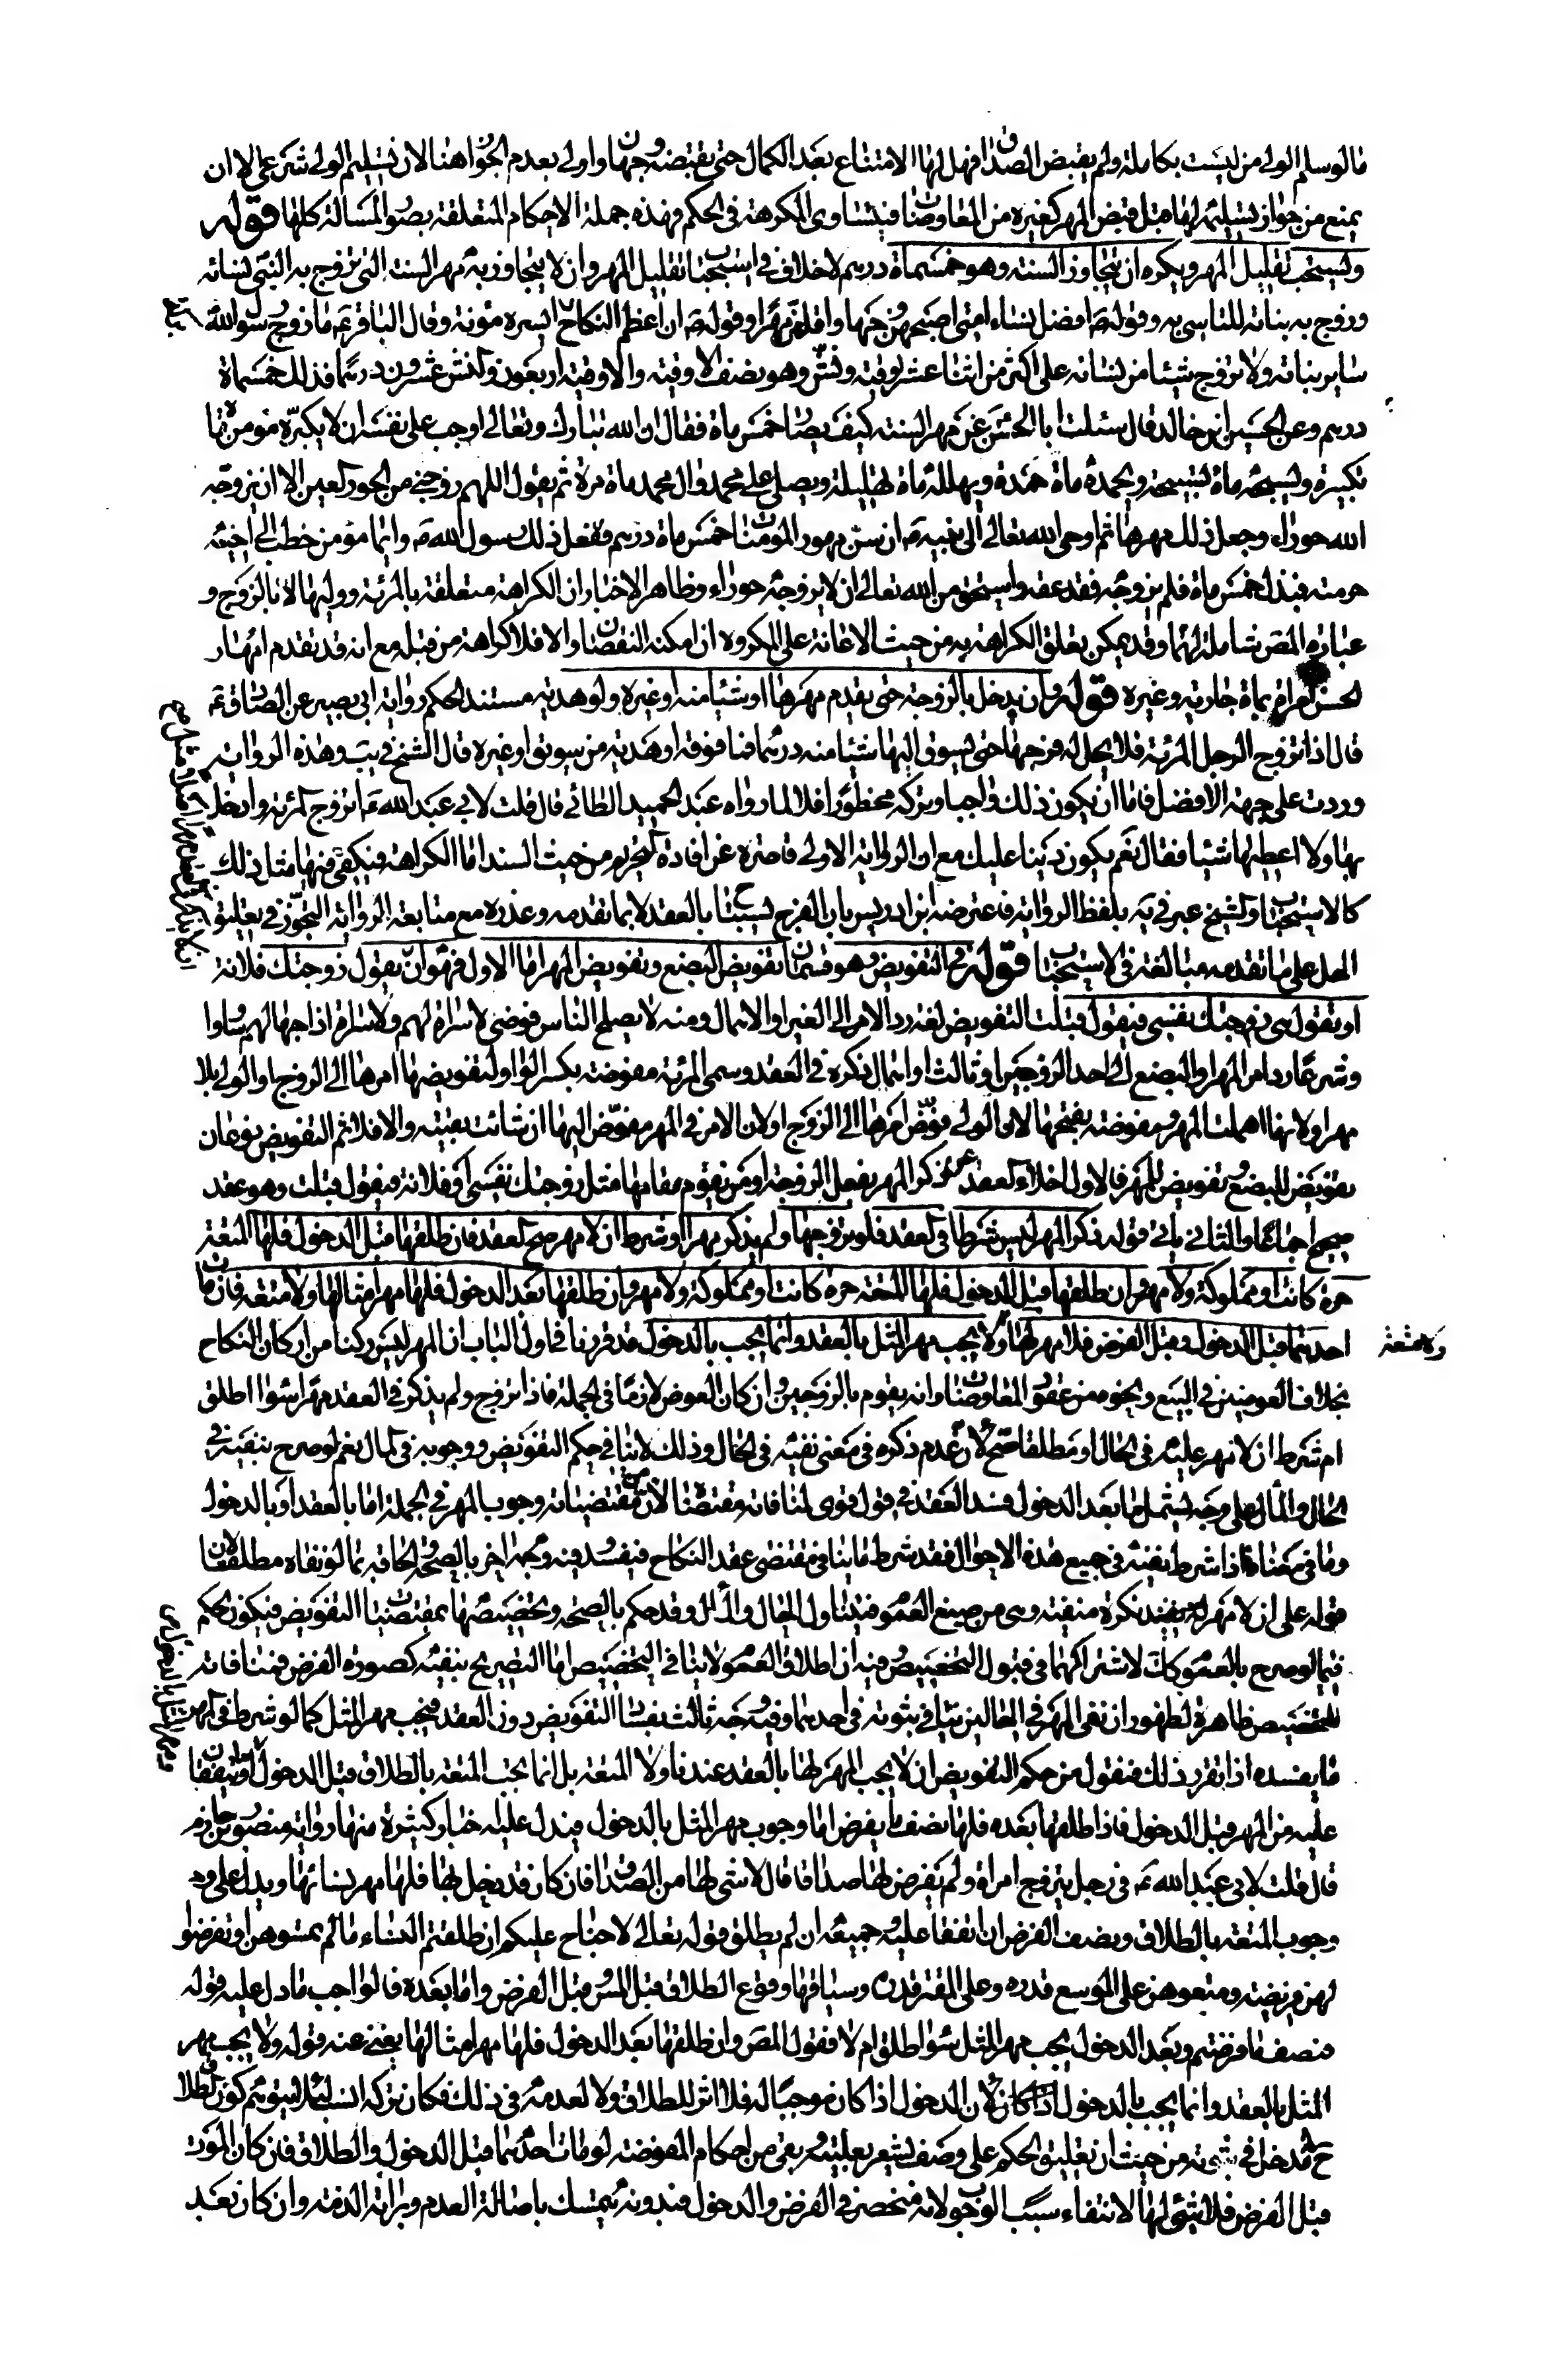 ما لو سلم الولى من ليست بكاملة ولم يقبض الصداق فهل لها الامتناع بعد الكمال حتى يقبضه وجهان واولى بعدم الجواز هنا لان تسليم الولى شرعى الا ان
يمنع من جواز تسليمه لها قبل قبض المهر كغيره من المعاوضات فيتساوى المكرهة فى الحكم فهذه جملة الاحكام المتعلقة بصور المسالة كلها قوله
ويستحب تقليل المهر ويكره ان يتجاوز السنة وهو خمسماة درهم لا خلاف فى استحباب تقليل المهر وان لا يتجاوز به مهر السنة التى تزوج به النبى نسائه
وزوج به بناته للتاسى به وقوله ص افضل نساء امتى اصبحهن وجها واقلهن مهرا وقوله ص ان اعظم النكاح ايسره مؤنة وقال الباقر ع ما زوج رسول الله
ساير بناته ولا تزوج شيئا من نسائه على اكثر من اثنا عشر اوقية ونش وهو نصف الاوقية والاوقية اربعون والنش عشرون درهما فذلك خمسماة
درهم وعن الحسين ابن خالد قال سئلت ابا الحسن عن مهر السنة كيف صار خمس ماة فقال ان الله تبارك وتعالى اوجب على نفسه ان لا يكبره مؤمن ماة
تكبيرة ويسبحه ماة تسبيحة ويحمده ماة حمدة ويهلله ماة تهليلة ويصلى على محمد وال محمد ماة مرة ثم يقول اللهم زوجنى من الحور العين الا ان يزوجه
الله حوراء وجعل ذلك مهرها ثم اوحى الله تعالى الى نبيه ص ان سن مهور المؤمنات خمس ماة درهم ففعل ذلك رسول الله ص وايما مؤمن خطب الى اخيه
حرمته فبذل خمس ماة فلم يزوجه فقد عقه واستحق من الله تعالى ان لا يزوجه حوراء وظاهر الاخبار ان الكراهة متعلقة بالمرئة ووليها لا بالزوج و
عبارة المص شاملة لهما وقد يمكن تعلق الكراهة به من حيث الاعانة على المكروه ان امكنه النقصان والا فلا كراهة من قبله مع انه قد تقدم امهار
الحسن ع امراة بماة جارية وغيره قوله وان يدخل بالزوجة حتى يقدم مهرها او شيئا منه او غيره ولو هدية مستند الحكم رواية ابى بصير عن الصادق ع
قال اذا تزوج الرجل المرئة فلا يحل له فرجها حتى يسوق اليها شيئا منه درهما فما فوقه او هدية من سويق او غيره قال الشيخ فى يب وهذه الرواية
وردت على جهة الافضل فاما ان يكون ذلك واجبا وتركه محظورا فلا لما رواه عبد الحميد الطائى قال قلت لابى عبد الله ع اتزوج المرئة وادخل
بها ولا اعطيها شيئا فقال نعم يكون دينا عليك مع ان الرواية الاولى قاصرة عن افادة التحريم من حيث السند اما الكراهة فيكفى فيها مثل ذلك
كالاستحباب والشيخ عبر فى يه بلفظ الرواية فاعترضه ابن ادريس بان الفرج يستباح بالعقد لا بما تقدمه وعذره مع متابعة الرواية التجوز فى تعليق
الحل على ما تقدمه مبالغة فى الاستحباب قوله فى التفويض وهو قسمان تفويض البضع وتفويض المهر اما الاول فهو ان يقول زوجتك فلانة
او تقول هى زوجتك نفسى فيقول قبلت التفويض لغة رد الامر الى الغير او الاهمال ومنه لا يصلح الناس فوضى لا سراة لهم ولا سراة اذا جهالهم سادوا
وشرعا رد امر المهر او البضع الى احد الزوجين او ثالث او اهمال ذكره فى العقد وسمى المرئة مفوضة بكسر الواو لتفويضها امرها الى الزوج او الولى بلا
مهر او لانها اهملت المهر ومفوضة بفتحها لان الولى فوض امرها الى الزوج او لان الامر فى المهر مفوض اليها ان شائت نفته والا فلا ثم التفويض نوعان
تفويض للبضع وتفويض للمهر فالاول اخلاء العقد عن ذكر المهر بفعل الزوجة او من يقوم مقامها مثل زوجتك نفسى او فلانة فيقول قبلت وهو عقد
صحيح اجماعا والثانى ياتى قوله ذكر المهر ليس شرطا فى العقد فلو تزوجها ولم يذكر مهرا او شرط ان لا مهر صح العقد فان طلقها قبل الدخول فلها المتعة
حرة كانت او مملوكة ولا مهر وان طلقها قبل الدخول فلها المتعة حرة كانت او مملوكة ولا مهر وان طلقها بعد الدخول فلها مهر امثالها ولا متعة فان مات
احدهما قبل الدخول وقبل الفرض فلا مهر لها ولا يجب مهر المثل بالعقد وانما يجب بالدخول قد قررنا فى اول الباب ان المهر ليس ركنا من اركان النكاح
ولا متعة
بخلاف العوضين فى البيع ونحوه من عقود المعاوضات وانه يقوم بالزوجين وان كان العوض لازما فى الجملة فاذا تزوج ولم يذكر فى العقد مهرا سواء اطلق
ام شرط ان لا مهر عليه فى الحال او مطلقا صح لان عدم ذكره فى معنى نفيه فى الحال وذلك لا ينافى حكم التفويض ووجوبه فى المال نعم لو صرح بنفيه فى
الحال والمال على وجه يشمل ما بعد الدخول فسد العقد فى قول قوى لمنافاته مقتضاه لان من مقتضياته وجوب المهر فى الجملة اما بالعقد او بالدخول
وما فى معناه فاذا شرط نفيه فى جميع هذه الاحوال فقد شرط ما ينافى مقتضى عقد النكاح فيفسد فيه وجه اخر بالصحة الحاقه بما لو نفاه مطلقا لان
قوله على ان لا مهر لك يفيد نكرة منفية وهى من صيغ العموم فيتناول الحال والمال وقد حكم بالصحة وتخصيصها بمقتضيات التفويض فيكون الحكم
فيما لو صرح بالعموم كك لاشتراكهما فى قبول التخصيص وفيه ان اطلاق العموم لا ينافى التخصيص اما التصريح بنفيه كصورة الفرض فمنافاته
للتخصيص ظاهرة لظهور ان نفى المهر فى الحالين ينافى ثبوته فى احدهما وفيه وجه ثالث بفساد التفويض دون العقد فيجب مهر المثل كما لو شرط فى المهر
ما يفسده اذا تقرر ذلك فنقول من حكم التفويض ان لا يجب المهر لها بالعقد عندنا ولا المتعة بل انما يجب المتعة بالطلاق قبل الدخول او ما يتفقان
عليه من المهر قبل الدخول فاذا طلقها بعده فلها نصف ما يفرض اما وجوب مهر المثل بالدخول فيدل عليه اخبار كثيرة منها رواية منصور بن حازم
قال قلت لابى عبد الله ع فى رجل يتزوج امراة ولم يفرض لها صداقا قال لا شى لها من الصداق فان كان قد دخل بها فلها مهر نسائها ويدل على
وجوب المتعة بالطلاق ونصف الفرض ان اتفقا عليه وجميعه ان لم يطلق قوله تعالى لا جناح عليكم ان طلقتم النساء ما لم تمسوهن او تفرضوا
لهن فريضة ومتعوهن على الموسع قدره وعلى المقتر قدره وسياقها وقوع الطلاق قبل المس وقبل الفرض واما بعده فالواجب ما دل عليه قوله
فنصف ما فرضتم وبعد الدخول يجب مهر المثل سواء طلق ام لا فقول المص وان طلقها بعد الدخول فلها مهر امثالها يغنى عنه قوله ولا يجب مهر
المثل بالعقد وانما يجب بالدخول لان الدخول اذا كان موجبا له فلا اثر للطلاق ولا لعدمه فى ذلك فكان تركه انسب لئلا يتوهم كون الطلاق
ح له مدخل فى ثبوته من حيث ان تعليق الحكم على وصف يشعر بعليته وبقى من احكام المفوضة لو مات احدهما قبل الدخول والطلاق فان كان الموت
قبل الفرض فلا شى لها لانتفاء سبب الوجوب لانه منحصر فى الفرض والدخول فبدونه يتمسك باصالة العدم وبرائة الذمة وان كان بعد